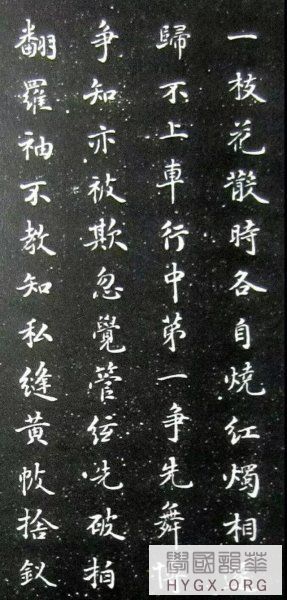 一枝花散時各自燒紅燭相
歸不上車行中第一爭先舞
爭知亦被欺忽覺管絃先破拍
翻羅袖不教知私縫黃帔捨釵
學國韻華
HYGX.ORG